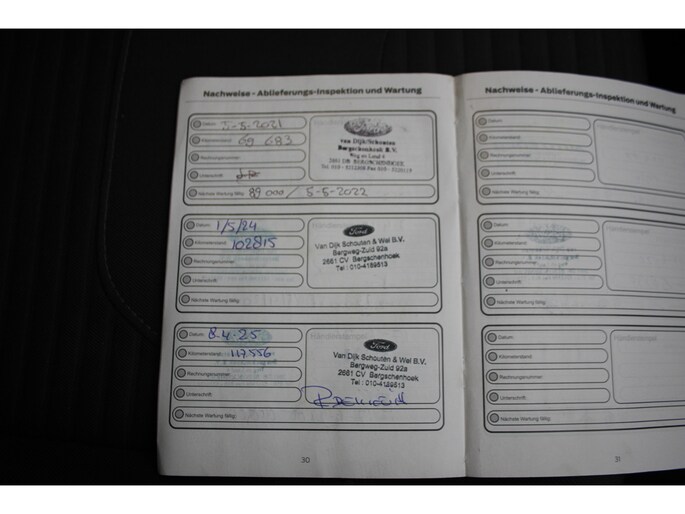 Nachweise - Ablieferungs-Inspektion und Wartung
Datum: 5-5-2021
Kilometerstand: 69 683
Rechnungsnummer:
Unterschrift:
Nächste Wartung fällig: 89 000 / 5-5-2022
van Dijk/Schouten
Bergschenhoek B.V.
Datum: 1/5/24
Kilometerstand: 102815
Rechnungsnummer:
Unterschrift:
Nächste Wartung fällig:
Ford
Van Dijk Schouten & Wel B.V.
Bergweg-Zuid 92a
2661 CV Bergschenhoek
Tel : 010-4189513
Datum: 8-4-25
Kilometerstand: 117556
Rechnungsnummer:
Unterschrift:
Nächste Wartung fällig:
Händlerstempel
Ford
Van Dijk Schouten & Wel B.V.
Bergweg-Zuid 92a
2661 CV Bergschenhoek
Tel : 010-4189513
30
Nachweise - Ablieferungs-Inspektion und Wartung
Datum:
Kilometerstand:
Rechnungsnummer:
Unterschrift:
Nächste Wartung fällig:
Datum:
Kilometerstand:
Rechnungsnummer:
Unterschrift:
Nächste Wartung fällig:
Datum:
Kilometerstand:
Rechnungsnummer:
Unterschrift:
Nächste Wartung fällig:
Händlerstempel
31